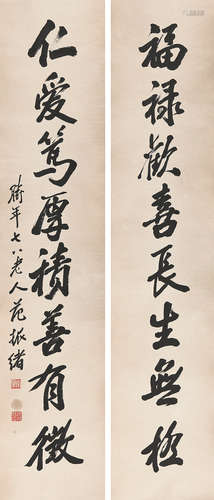 福禄歡喜長生無極
仁愛篤厚積善有徵
衛年七八老人范振緒